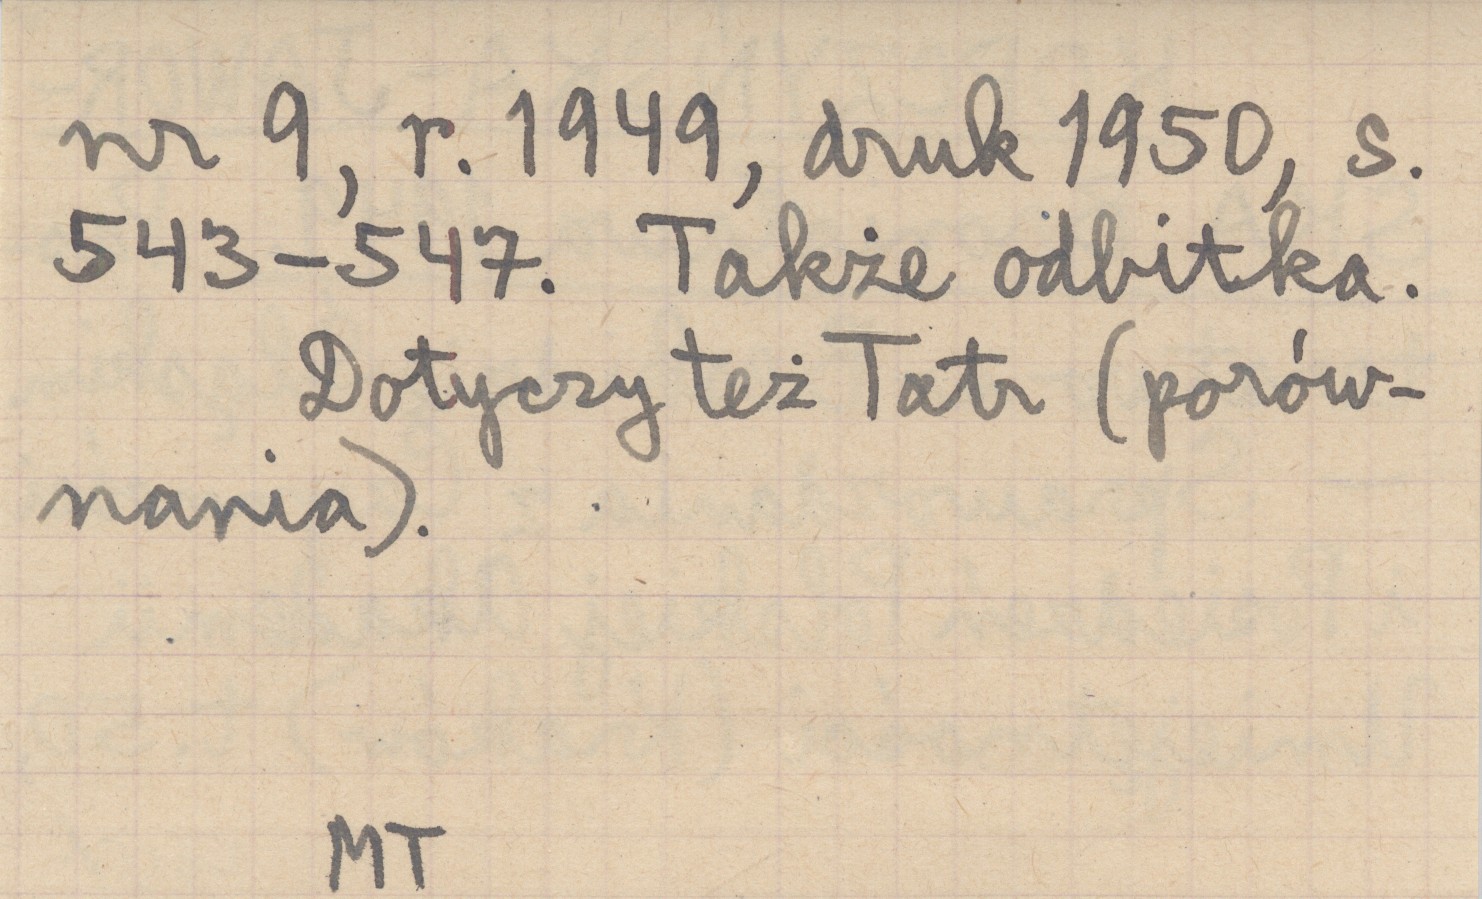 nr 9, r. 1949, druk 1950, s.
543-547. Także odbitka.
Dotyczy też Tatr (porów-
nania).
MT